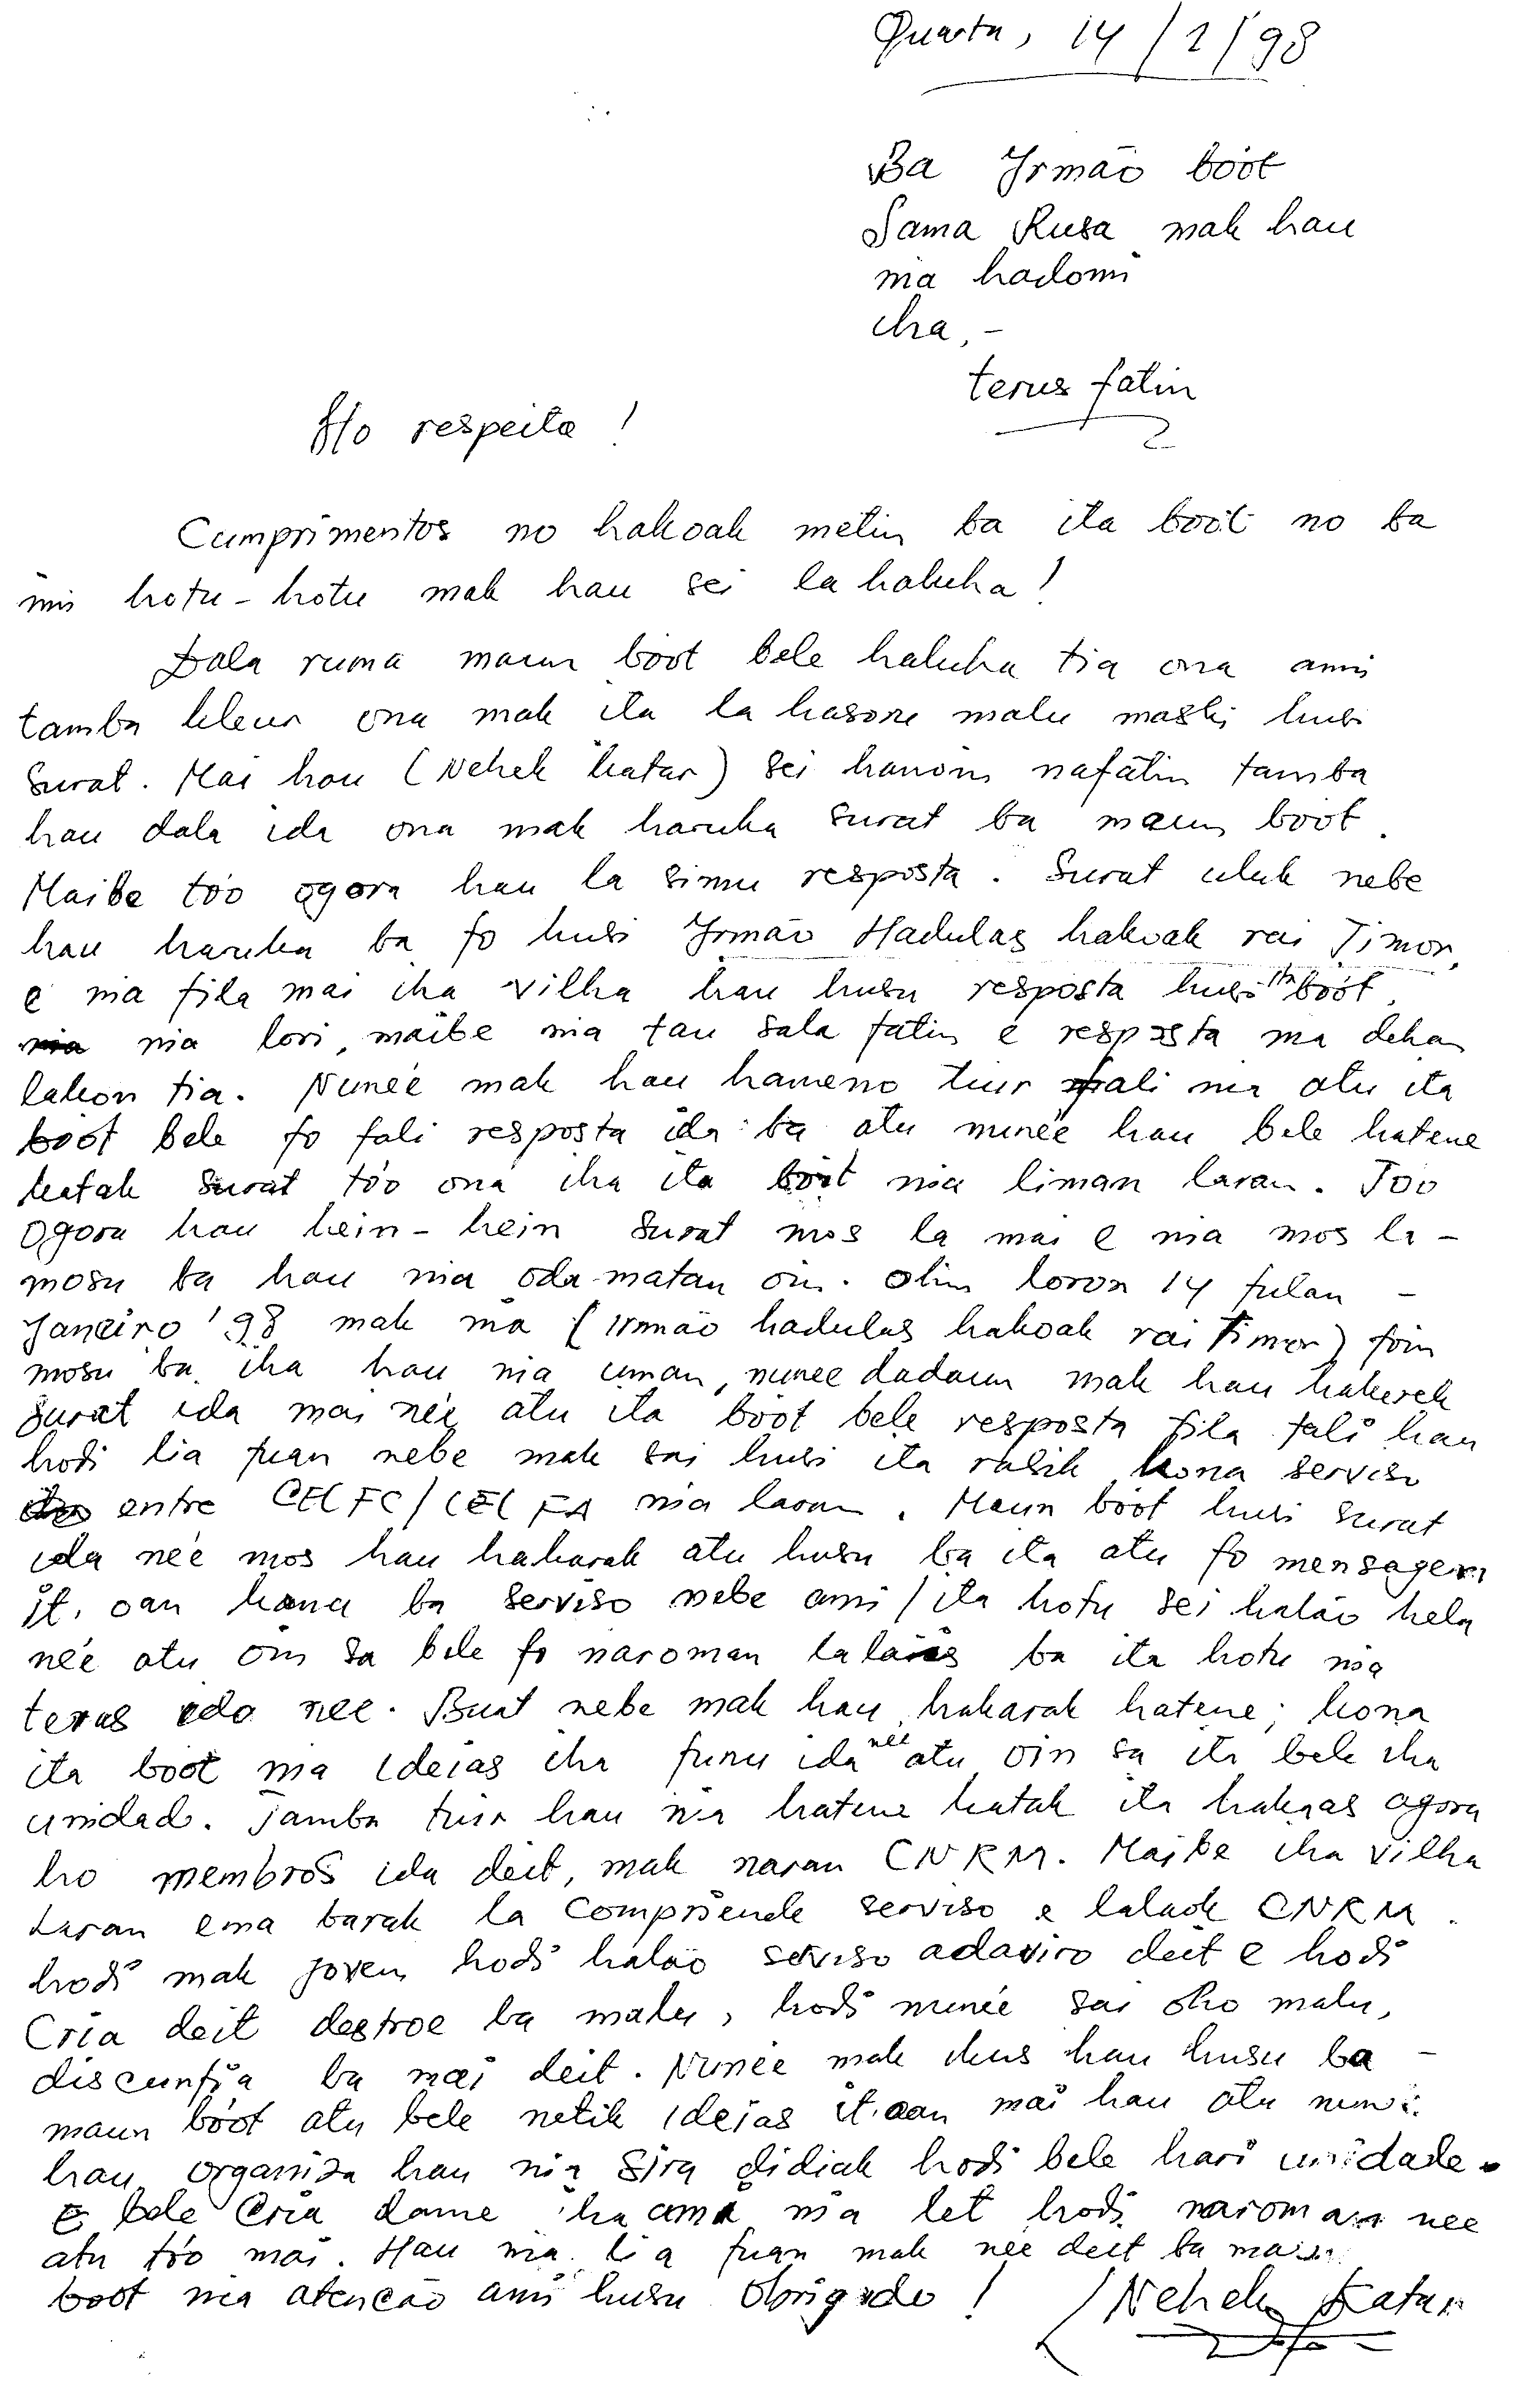 Quarta, 14/1/98
Ba Irmão boót
Sama Rusa mak hau
nia hadomi
iha,-
terus fatin
Ho respeito!
Cumprimentos no hakoak metin ba ita boót no ba
imi hotu-hotu mak hau sei la haluha!
Dala ruma maun boót bele haluha tia ona ami
tamba kleur ona mak ita la hasoru malu maski husi
surat. Mai hau (Nehek katar) sei hanoin nafatin tamba
hau dala ida ona mak haruka surat ba maun boót.
Maibe tóo agora hau la simu resposta. Surat uluk nebe
hau haruka ba fo husi Irmão Hadulas hakoak rai Timor,
e nia fila mai iha vilha hau husu resposta husi ita boót,
nia lori, maibe nia tau sala fatin e resposta nia dehan
lakon tia. Nuneé mak hau hameno tuir fali nia atu ita
boót bele fo fali resposta ida ba atu nuneé hau bele hatene
katak surat tóo ona iha ita boót nia liman laran. Tóo
agora hau hein-hein surat mos la mai e nia mos la-
mosu ba hau nia oda-matan oin. Olin loron 14 fulan -
Janeiro '98 mak nia (Irmão hadulas hakoak rai Timor) foin
mosu ba iha hau nia uman, nunee dadaun mak hau hakerek
surat ida mai neé atu ita boót bele resposta fila fali hau
hodi lia fuan nebe mak sai husi ita rasik kona serviso
entre CELFC/CELFA nia laran. Maun boót husi surat
ida neé mos hau hakarak atu husu ba ita atu fo mensagem
it. oan kona ba serviso nebe ami/ita hotu sei halao hela
neé atu oin sa bele fo naroman lalais ba ita hotu nia
terus ida nee. Buat nebe mak hau hakarak hatene; kona
ita boót nia ideias iha funu ida nee atu oin sa ita bele iha
unidad. Tamba tuir hau nia hatene katak ita hakaas agora
ho membros ida deit, mak naran CNRM. Maibe iha vilha
laran ema barak la compriende serviso e lalaok CNRM.
hodi mak joven hodi halao serviso adaviro deit e hodi
Cria deit destroe ba malu, hodi nuneé sai oho malu,
discunfia ba mai deit. Nuneé mak ikus hau husu ba -
maun boót atu bele netik ideias it. oan mai hau atu nuneé
hau organiza hau nia sira didiak hodi bele hari unidade.
E bele Cria dame iha ama nia let hodi naroman nee
atu tóo mai. Hau nia lia fuan mak neé deit ba maun
boot nia atencão ami husu Obrigado!
Nehek Katar